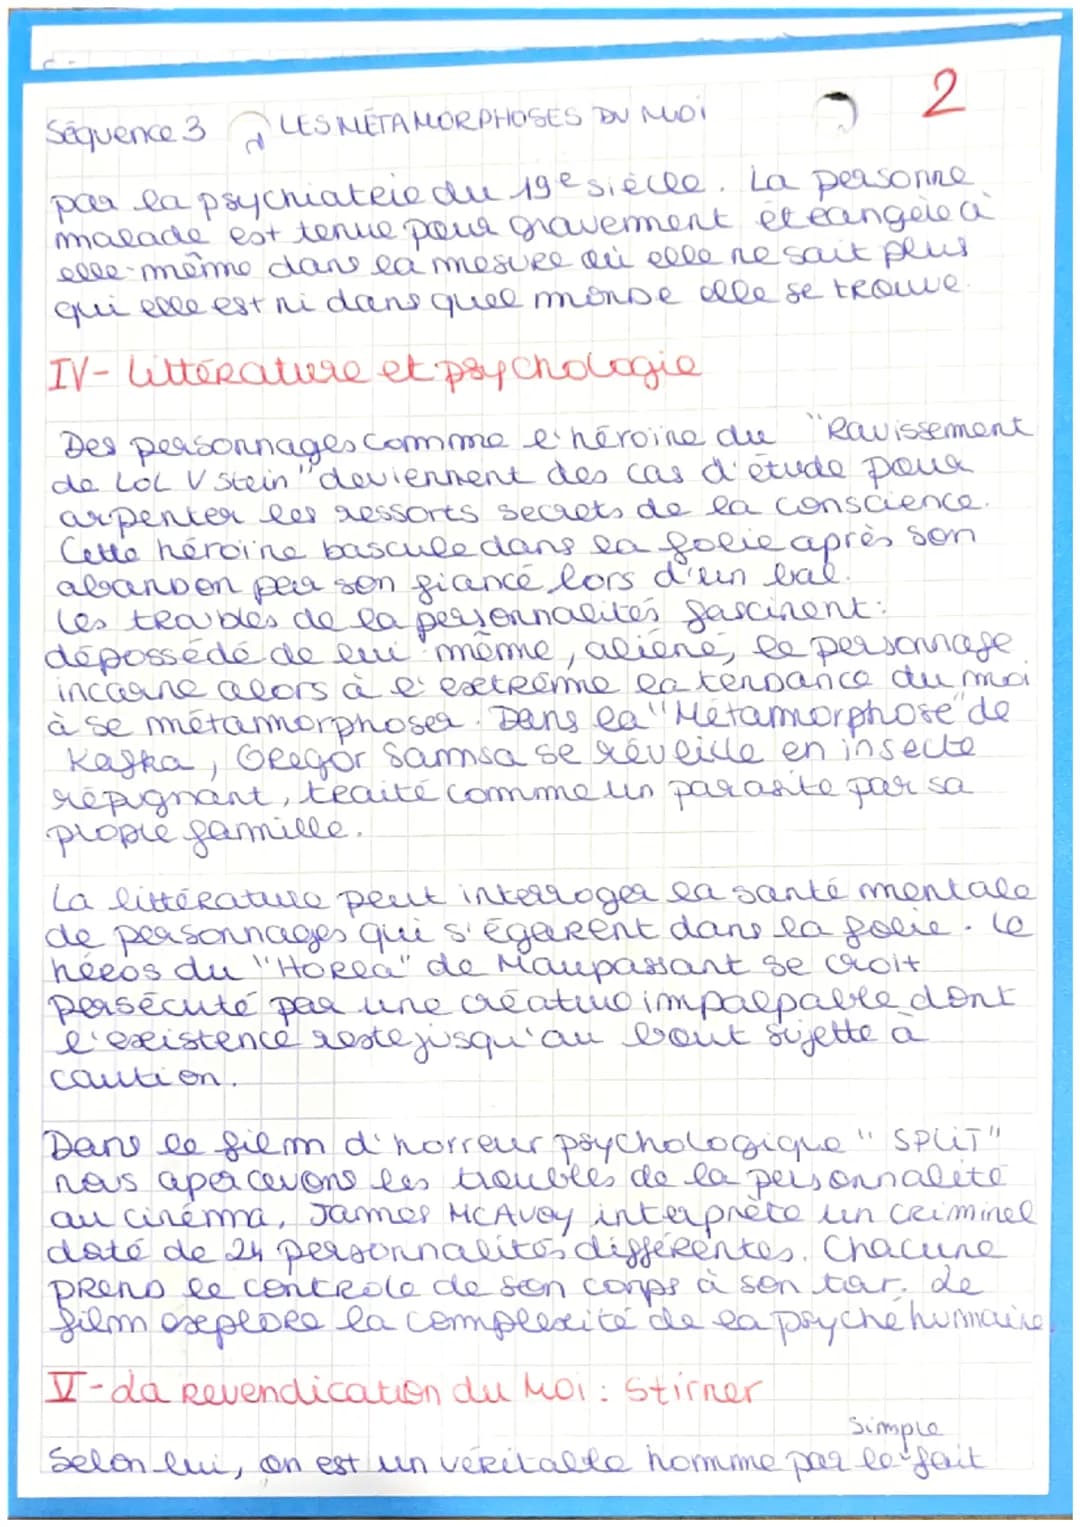 2
Séquence 3 LES MÉTAMORPHOSES DU MOI
par la psychiatrie du 19e siècle. La personne
malade est tenue pour gravement étrangère à
elle-même dans la mesure où elle ne sait plus
qui elle est ni dans quel monde elle se trouve.
IV- Littérature et psychologie
Des personnages comme l'héroïne du "Ravissement
de LOL V Stein" deviennent des cas d'étude pour
arpenter les ressorts secrets de la conscience.
Cette héroïne bascule dans la folie après son
abandon par son fiancé lors d'un bal.
Les troubles de la personnalités fascinent:
dépossédé de lui même, aliéné, le personnage
incarne alors à l'extrême la tendance du moi
à se métamorphoser. Dans la "Métamorphose" de
Kafka, Gregor Samsa se réveille en insecte
répugnant, traité comme un parasite par sa
propre famille.
La littérature peut interroger la santé mentale
de personnages qui s'égarent dans la folie. Le
héros du "HORLA" de Maupassant se croit
persécuté par une créature impalpable dont
l'existence reste jusqu'au bout sujette à
caution.
Dans le film d'horreur psychologique "SPLIT"
nous apercevons les troubles de la personnalité
au cinéma, James MCAVOY interprète un criminel
doté de 24 personnalités différentes. Chacune
prend le contrôle de son corps à son tor. Le
film explore la complexité de la psyché humaine.
V-La revendication du Moi : Stirner
simple
Selon lui, on est un véritable homme par le fait